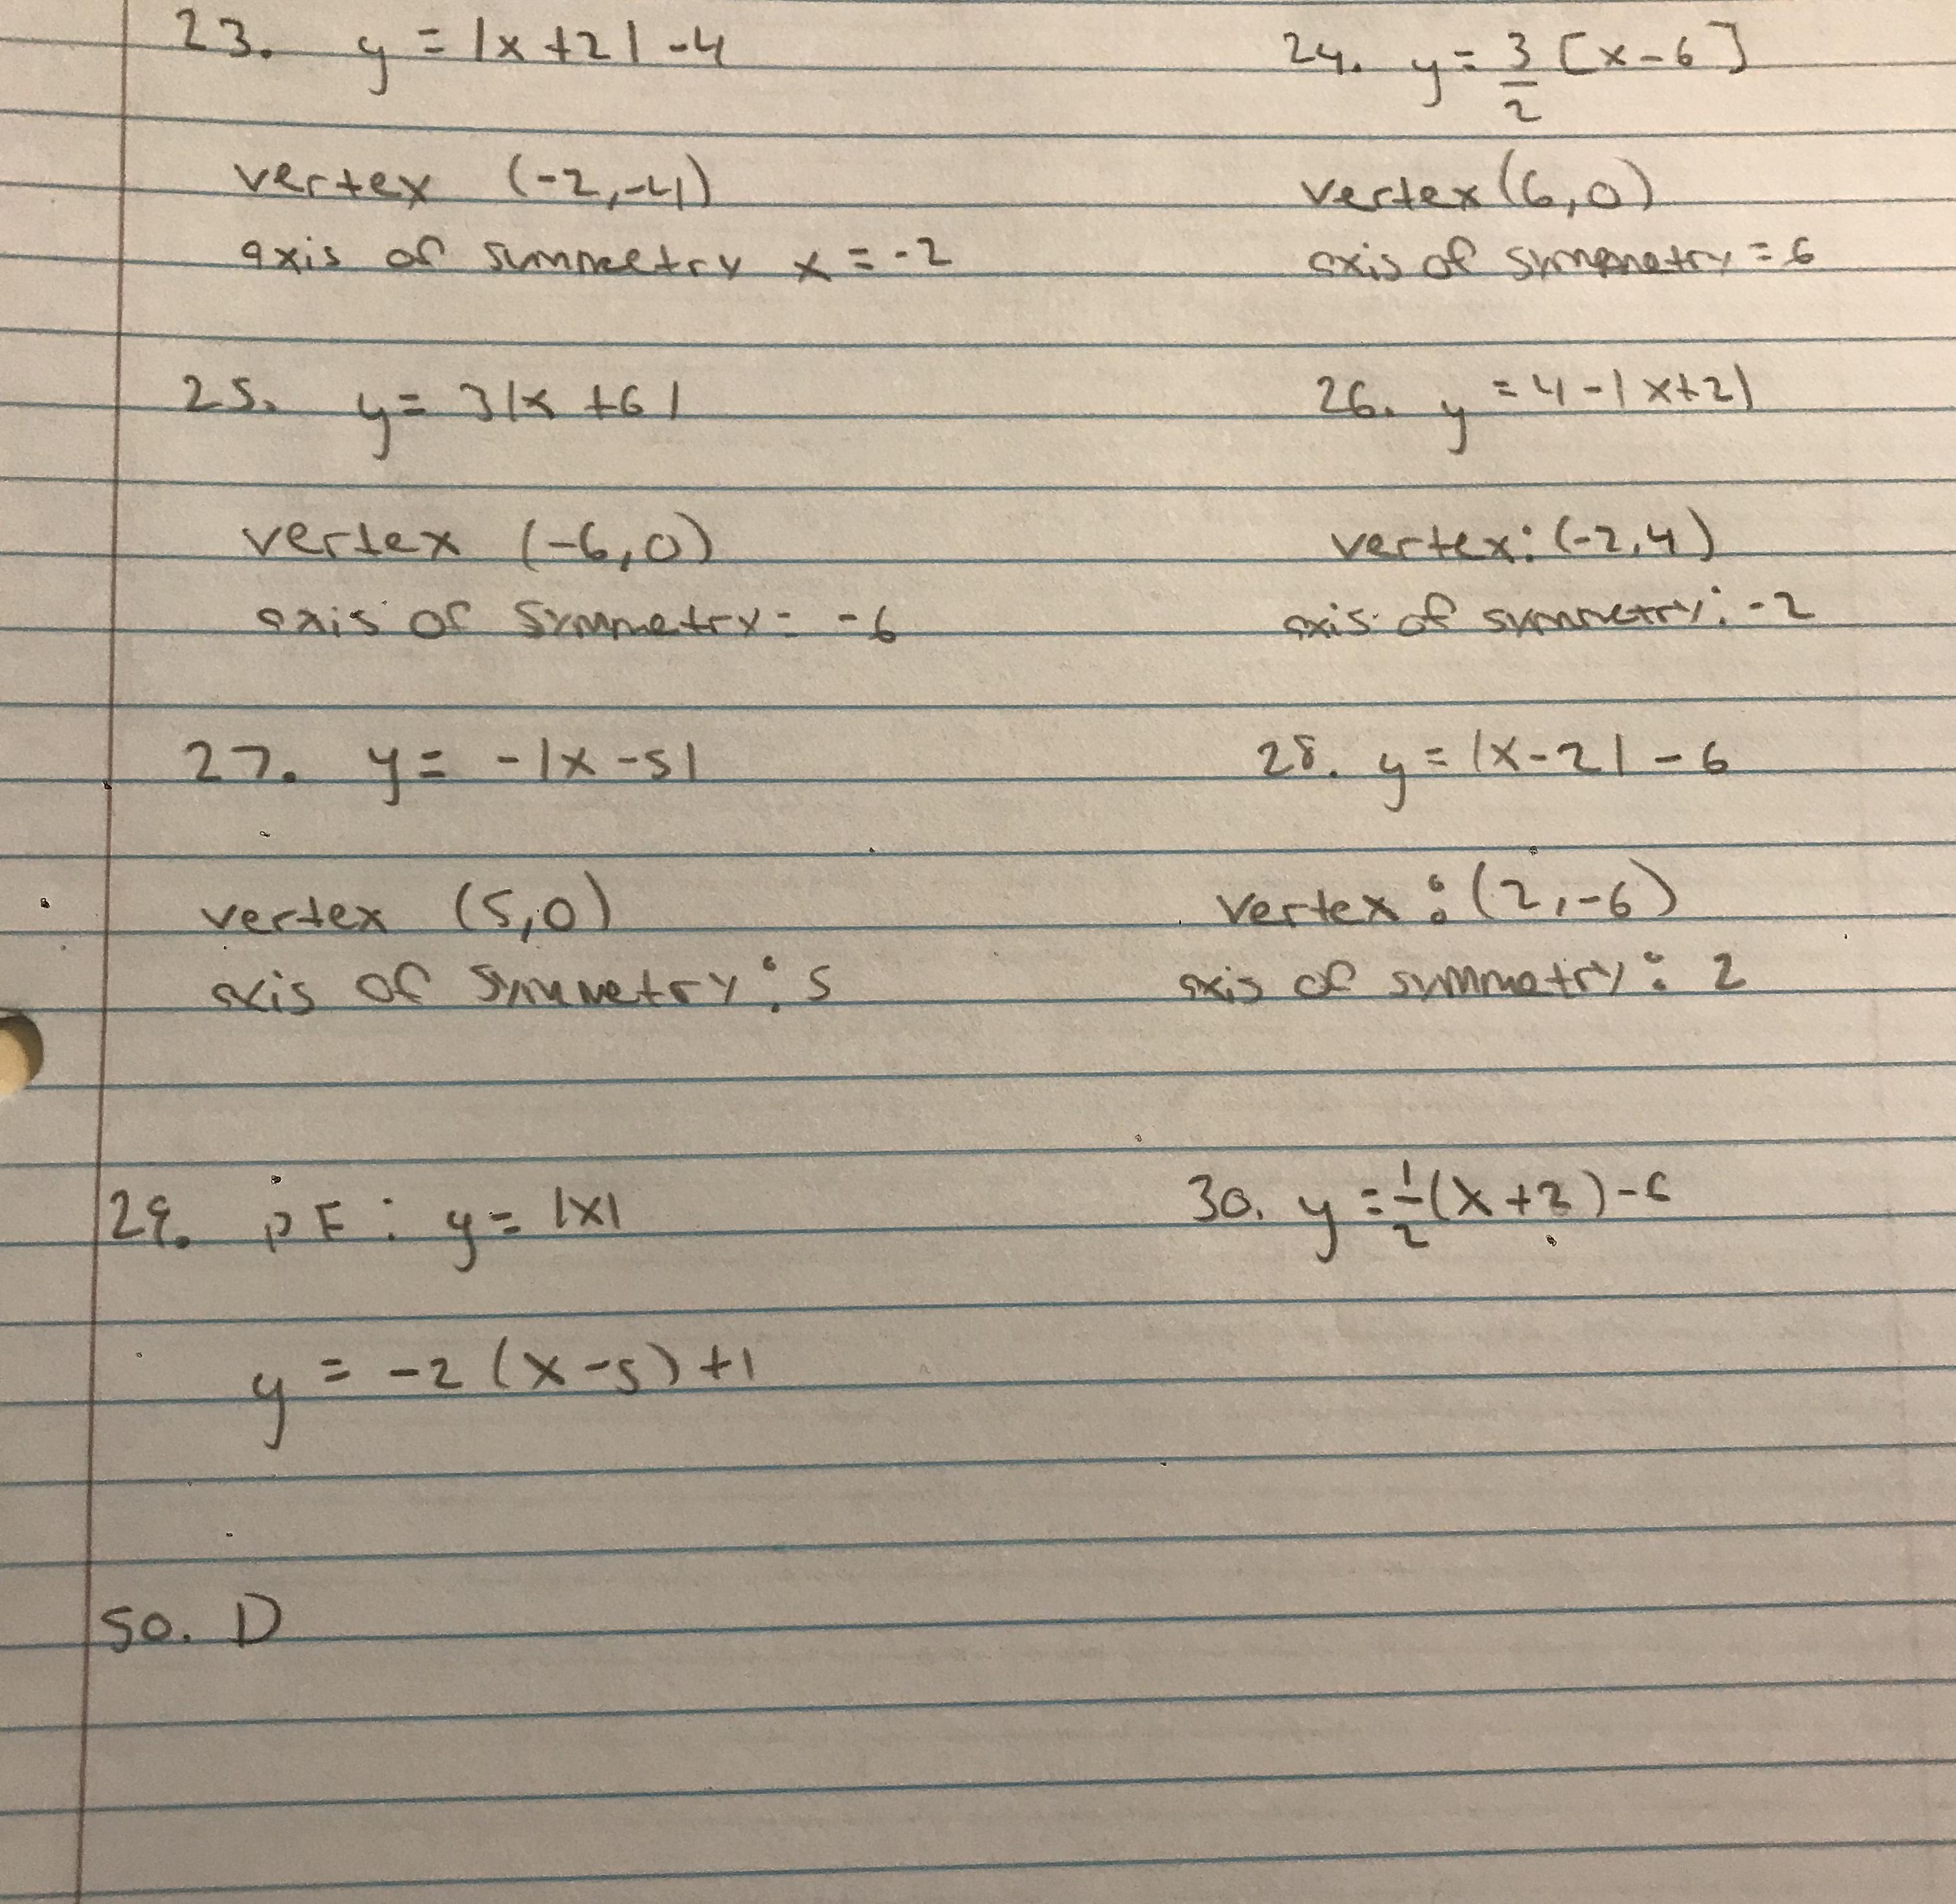 23. y = |x+2| -4
24. y = 3/2 [x-6]
vertex (-2,-4)
axis of symmetry x = -2
vertex (6,0)
axis of symmetry = 6
25. y = 3|x +6|
26. y = 4-|x+2|
vertex (-6,0)
axis of symmetry = -6
vertex: (-2,4)
axis of symmetry: -2
27. y = -|x -5|
28. y = |x-2| - 6
vertex (5,0)
axis of symmetry: 5
vertex: (2,-6)
axis of symmetry: 2
29. PF: y = |x|
y = -2 (x-5) +1
30. y = 1/2 (x + ) -6
50. D